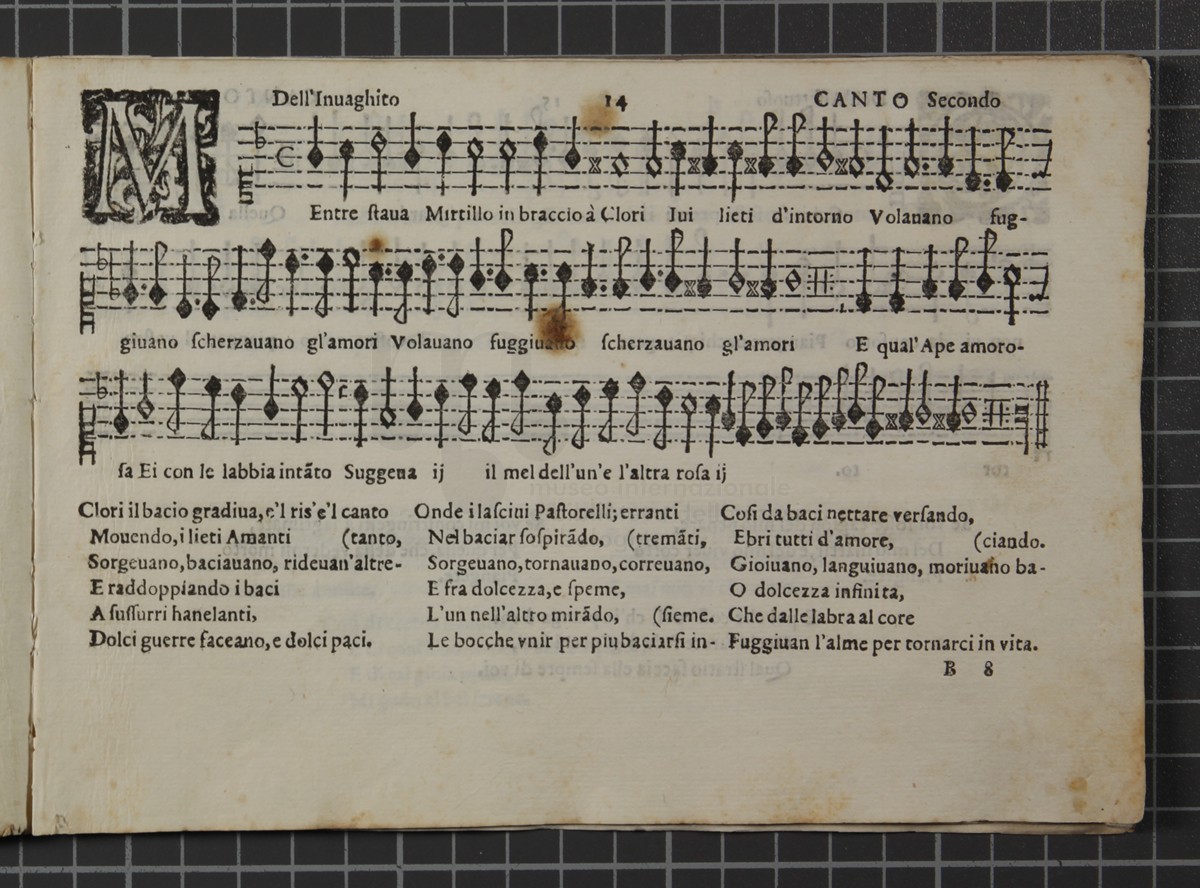 Dell'Inuaghito 14 CANTO Secondo
MEntre ſtaua Mirtillo in braccio à Clori Iui lieti d'intorno Volauano fug-
giuano ſcherzauano gl'amori Volauano fuggiuano ſcherzauano gl'amori E qual'Ape amoro-
ſa Ei con le labbia intãto Suggeua ij il mel dell'un'e l'altra roſa ij
museo internazionale
Clori il bacio gradiua, e'l ris'e'l canto
Mouendo, i lieti Amanti (tanto,
Sorgeuano, baciauano, rideuan'altre-
E raddoppiando i baci
A ſuſſurri hanelanti,
Dolci guerre faceano, e dolci paci.
Onde i laſciui Paſtorelli; erranti
Nel baciar ſoſpirãdo, (tremãti,
Sorgeuano, tornauano, correuano,
E fra dolcezza, e ſpeme,
L'un nell'altro mirãdo, (ſieme.
Le bocche vnir per piu baciarſi in-
Coſi da baci nettare verſando,
Ebri tutti d'amore, (ciando.
Gioiuano, languiuano, moriuano ba-
O dolcezza infinita,
Che dalle labra al core
Fuggiuan l'alme per tornarci in vita.
B 8